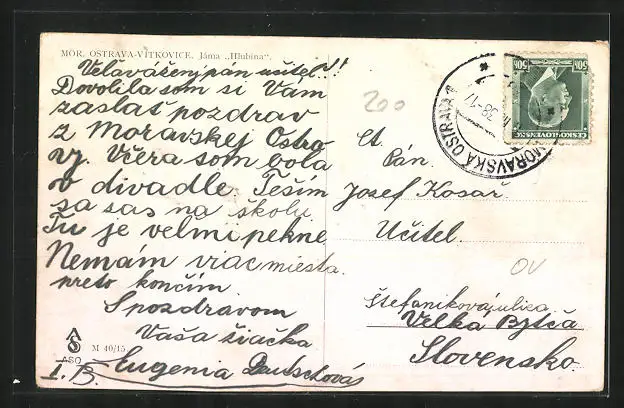 MOR. OSTRAVA-VÍTKOVICE. Jáma „Hlubina“.
Velavážený pán učitel!!
Dovolila som si Vám
zaslať pozdrav
z Moravskej Ostra
vy. Včera som bola
v divadle. Teším
sa sas na školu.
Tu je velmi pekne
Nemám viac miesta
preto končím
S pozdravom
Vaša žiačka
Eugenia Deutschová
I. B.
M 40/15
ASO
200
Ct.
Pán.
Josef Kosař
Učitel
OV
Štefanikova ulica
Velka Bytča
Slovensko
MORAVSKÁ OSTRAVA 1
50h
ČESKO-SLOVENSKO